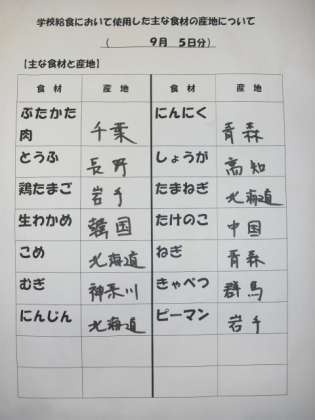 学校給食において使用した主な食材の産地について
( 9月 5日分)
【主な食材と産地】
食 材 産 地 食 材 産 地
ぶたかた肉 千葉 にんにく 青森
とうふ 長野 しょうが 高知
鶏たまご 岩手 たまねぎ 北海道
生わかめ 韓国 たけのこ 中国
こめ 北海道 ねぎ 青森
むぎ 神奈川 きゃべつ 群馬
にんじん 北海道 ピーマン 岩手